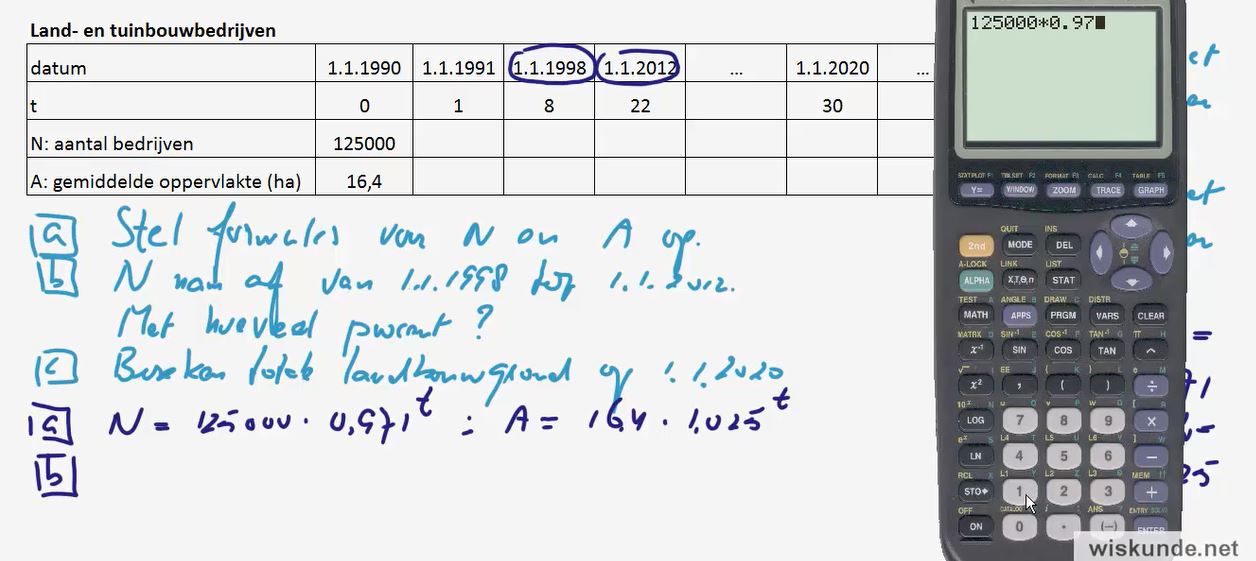 Land- en tuinbouwbedrijven
datum 1.1.1990 1.1.1991 1.1.1998 1.1.2012 ... 1.1.2020 ...
t 0 1 8 22 30
N: aantal bedrijven 125000
A: gemiddelde oppervlakte (ha) 16,4
a Stel formules van N en A op.
b N nam af van 1.1.1998 tot 1.1.2012.
Met hoeveel procent?
c Bereken totale landbouwgrond op 1.1.2020
a N = 125000 · 0,971^t ; A = 16,4 · 1,025^t
b
125000*0.97
STAT PLOT F1 TBLSET F2 FORMAT F3 CALC F4 TABLE F5
Y= WINDOW ZOOM TRACE GRAPH
QUIT INS
2nd MODE DEL
A-LOCK LINK LIST
ALPHA X,T,θ,n STAT
TEST A ANGLE B DRAW C DISTR
MATH APPS PRGM VARS CLEAR
MATRX D SIN⁻¹ E COS⁻¹ F TAN⁻¹ G π H
x⁻¹ SIN COS TAN ^
√ I EE J { K } L e M
x² , ( ) ÷
10ˣ N u O v P w Q [ R
LOG 7 8 9 ×
eˣ S L4 T L5 U L6 V ] W
LN 4 5 6 −
RCL X L1 Y L2 Z L3 θ MEM "
STO▸ 1 2 3 +
OFF CATALOG i : ANS ? ENTRY SOLVE
ON 0 . (-) ENTER
et
et
=
25
wiskunde.net